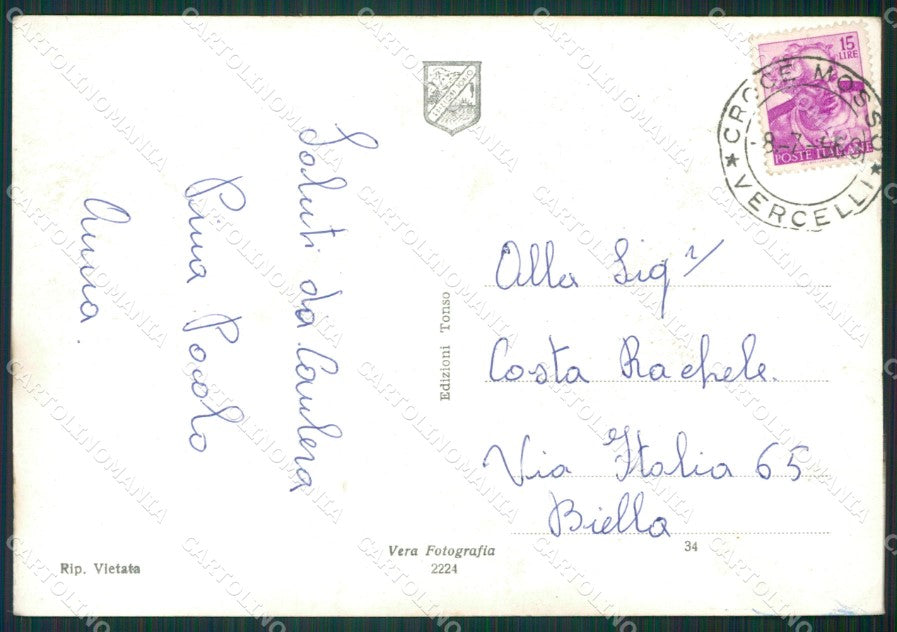 Saluti da Caulera
Pina Paolo
Anna.
Edizioni Tonso
Rip. Vietata
Vera Fotografia
2224
34
15
LIRE
POSTE ITALIANE
CROCE MOSSO
VERCELLI
Alla Sig.
Costa Rachele.
Via Italia 65
Biella
CARTOLINOMANIA